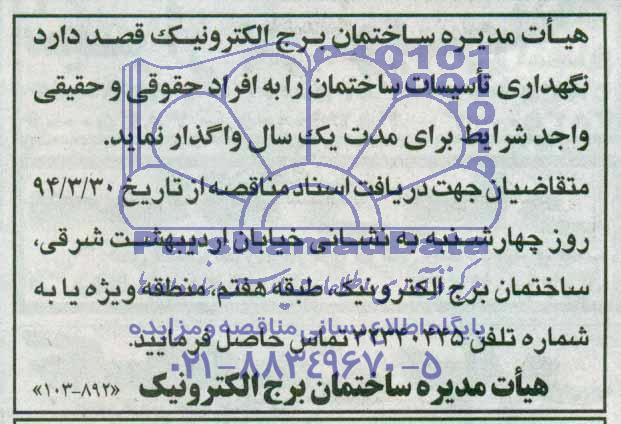 هیأت مدیره ساختمان برج الکترونیک قصد دارد
نگهداری تأسیسات ساختمان را به افراد حقوقی و حقیقی
واجد شرایط برای مدت یک سال واگذار نماید.
متقاضیان جهت دریافت اسناد مناقصه از تاریخ ۹۴/۳/۳۰
روز چهارشنبه به نشانی خیابان اردیبهشت شرقی،
ساختمان برج الکترونیک، طبقه هفتم، منطقه ویژه یا به
شماره تلفن ۳۲۳۴۰۲۲۵ تماس حاصل فرمایید.
هیأت مدیره ساختمان برج الکترونیک «۱۰۳-۸۹۲»
ParsNamadData
پایگاه اطلاع رسانی مناقصه و مزایده
۰۲۱-۸۸۳۴۹۶۷۰-۵